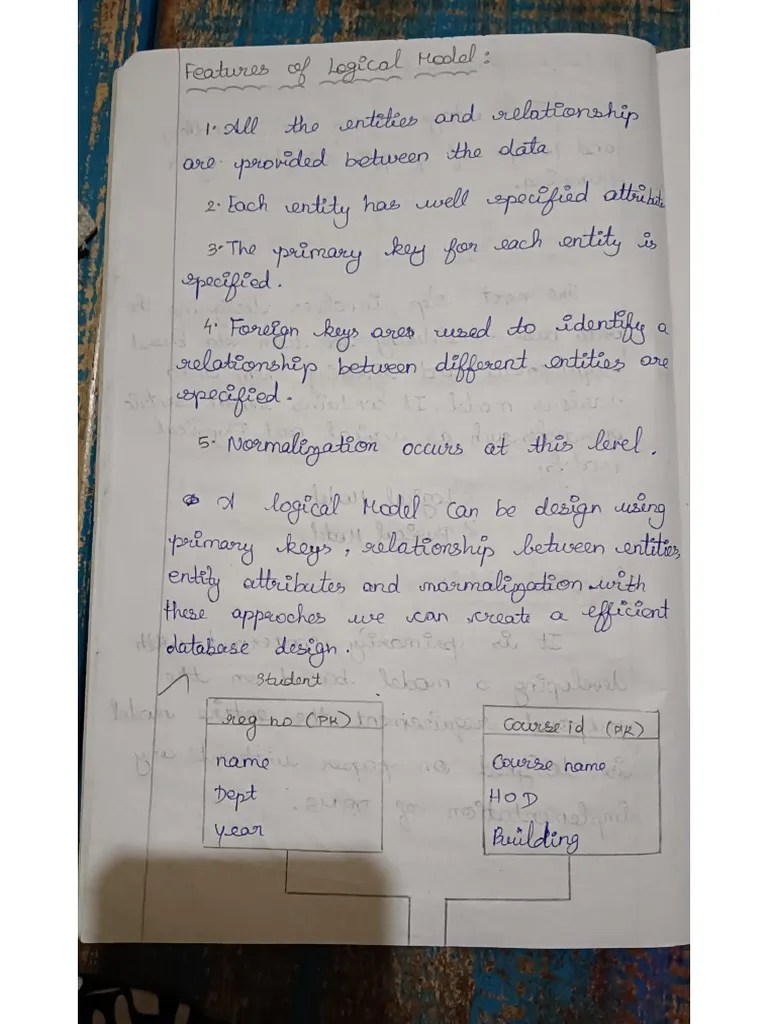 Features of Logical Model:
1. All the entities and relationship
are provided between the data
2. Each entity has well specified attribute
3. The primary key for each entity is
specified.
4. Foreign keys ares used to identify a
relationship between different entities are
specified.
5. Normalization occurs at this level.
A logical Model can be design using
primary keys, relationship between entities,
entity attributes and normalization with
these approches we can create a efficient
database design.
Student
reg no (PK)
name
Dept
year
Course id (PK)
Course name
HOD
Building